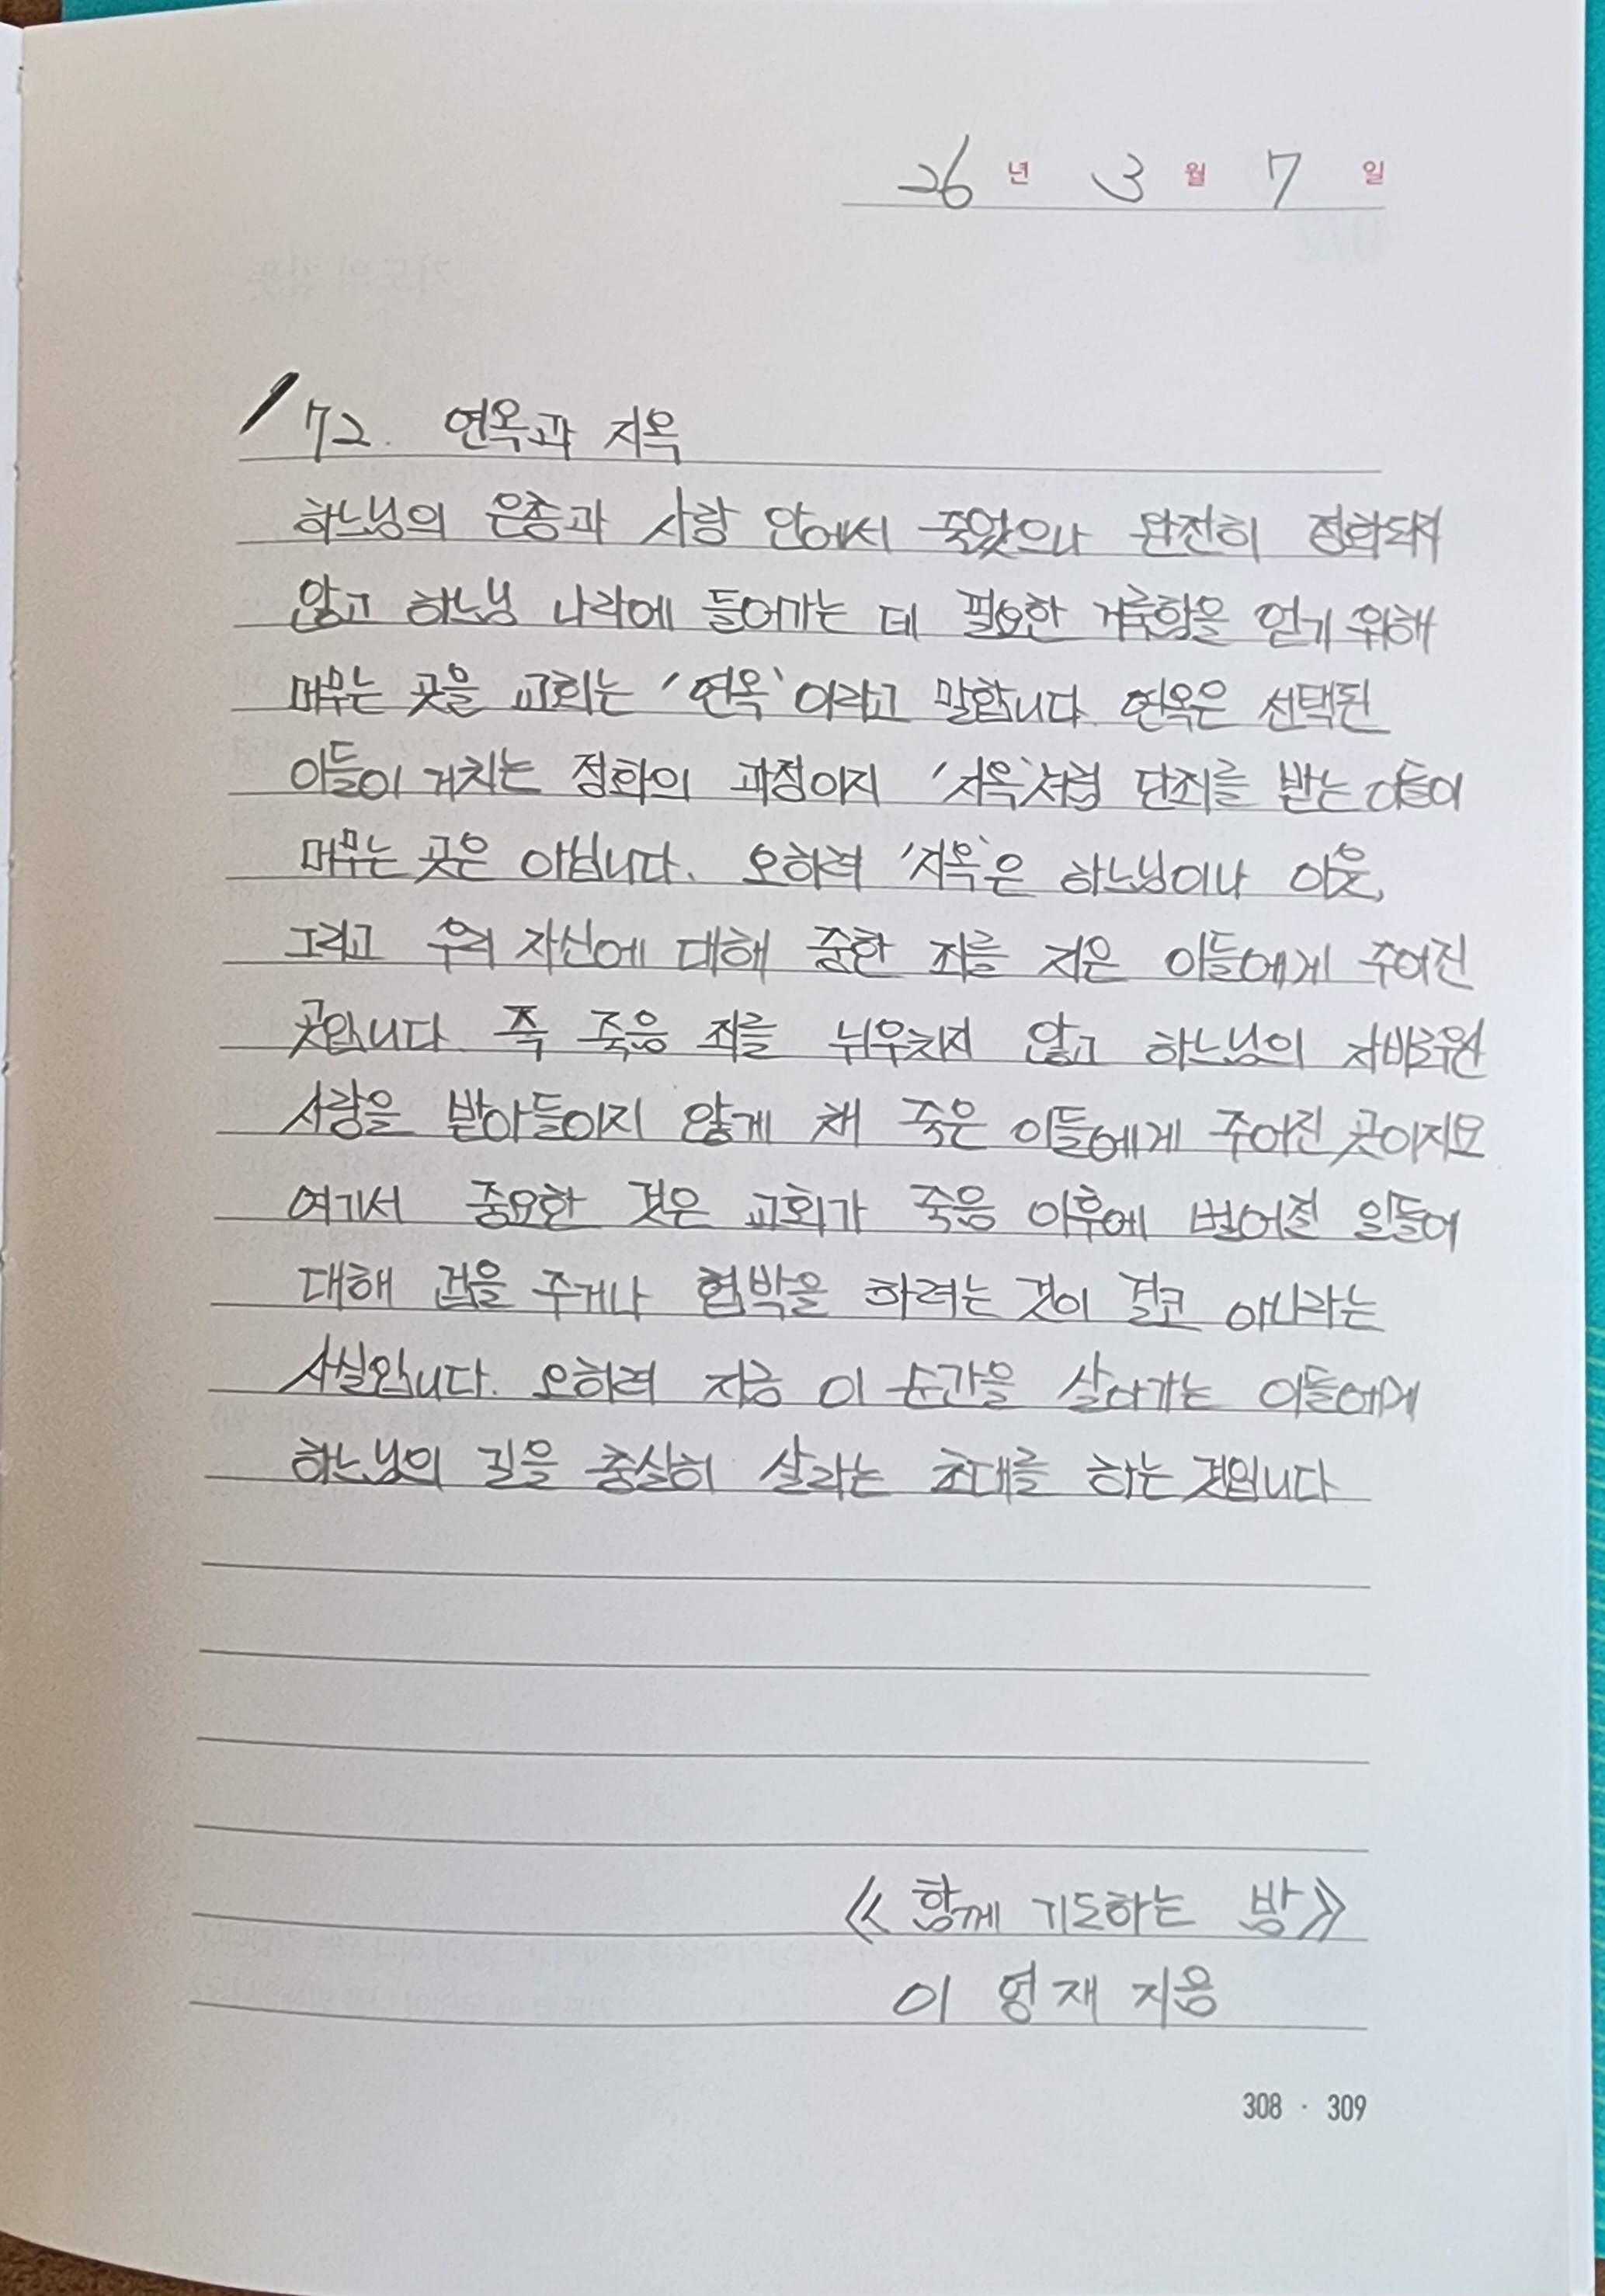 26년 3월 7일
72. 연옥과 지옥
하느님의 은총과 사랑 안에서 죽었으나 완전히 정화되지
않고 하느님 나라에 들어가는 데 필요한 거룩함을 얻기 위해
머무는 곳을 교회는 '연옥'이라고 말합니다. 연옥은 선택된
이들이 거치는 정화의 과정이지 '지옥'처럼 단죄를 받는 이들이
머무는 곳은 아닙니다. 오히려 '지옥'은 하느님이나 이웃,
그리고 우리 자신에 대해 중한 죄를 지은 이들에게 주어진
곳입니다. 즉 죽음 죄를 뉘우치지 않고 하느님의 자비로운
사랑을 받아들이지 않게 채 죽은 이들에게 주어진 곳이지요
여기서 중요한 것은 교회가 죽음 이후에 벌어질 일들에
대해 겁을 주거나 협박을 하려는 것이 결코 아니라는
사실입니다. 오히려 지금 이 순간을 살아가는 이들에게
하느님의 길을 충실히 살라는 초대를 하는 것입니다
《함께 기도하는 밤》
이 영재 지음
308 · 309